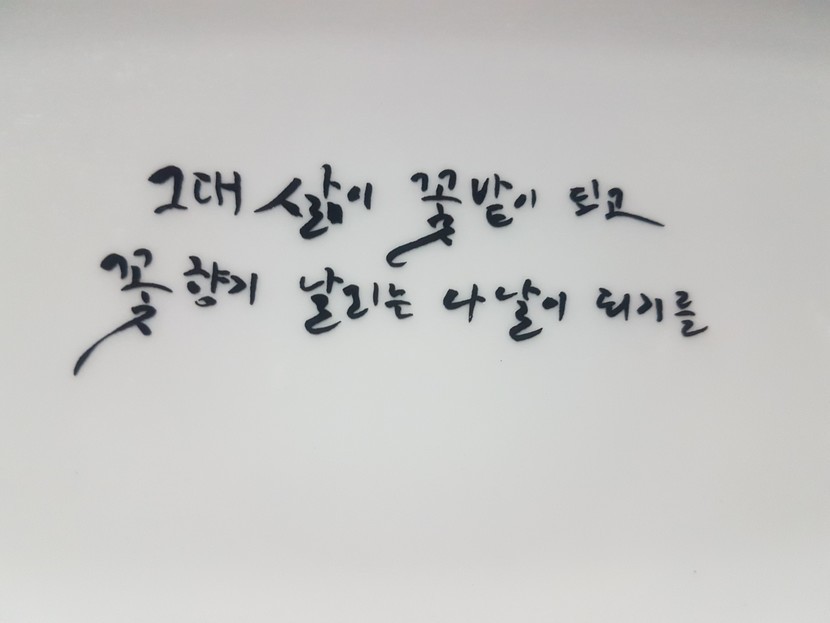 그대 삶이 꽃밭이 되고
꽃향기 날리는 나날이 되기를